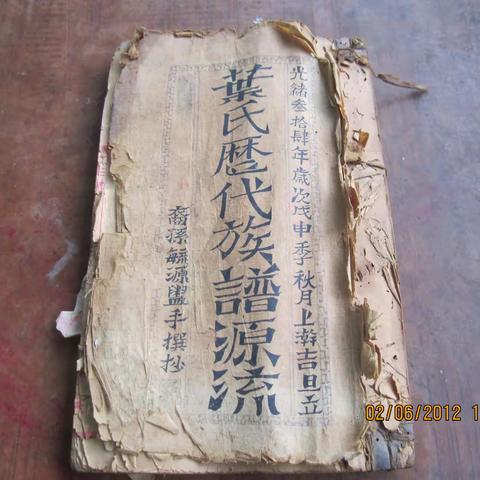 光緒叁拾肆年歲次戊申季秋月上澣吉旦立
葉氏歷代族譜源流
裔孫毓源盥手撰抄
02/06/2012 1